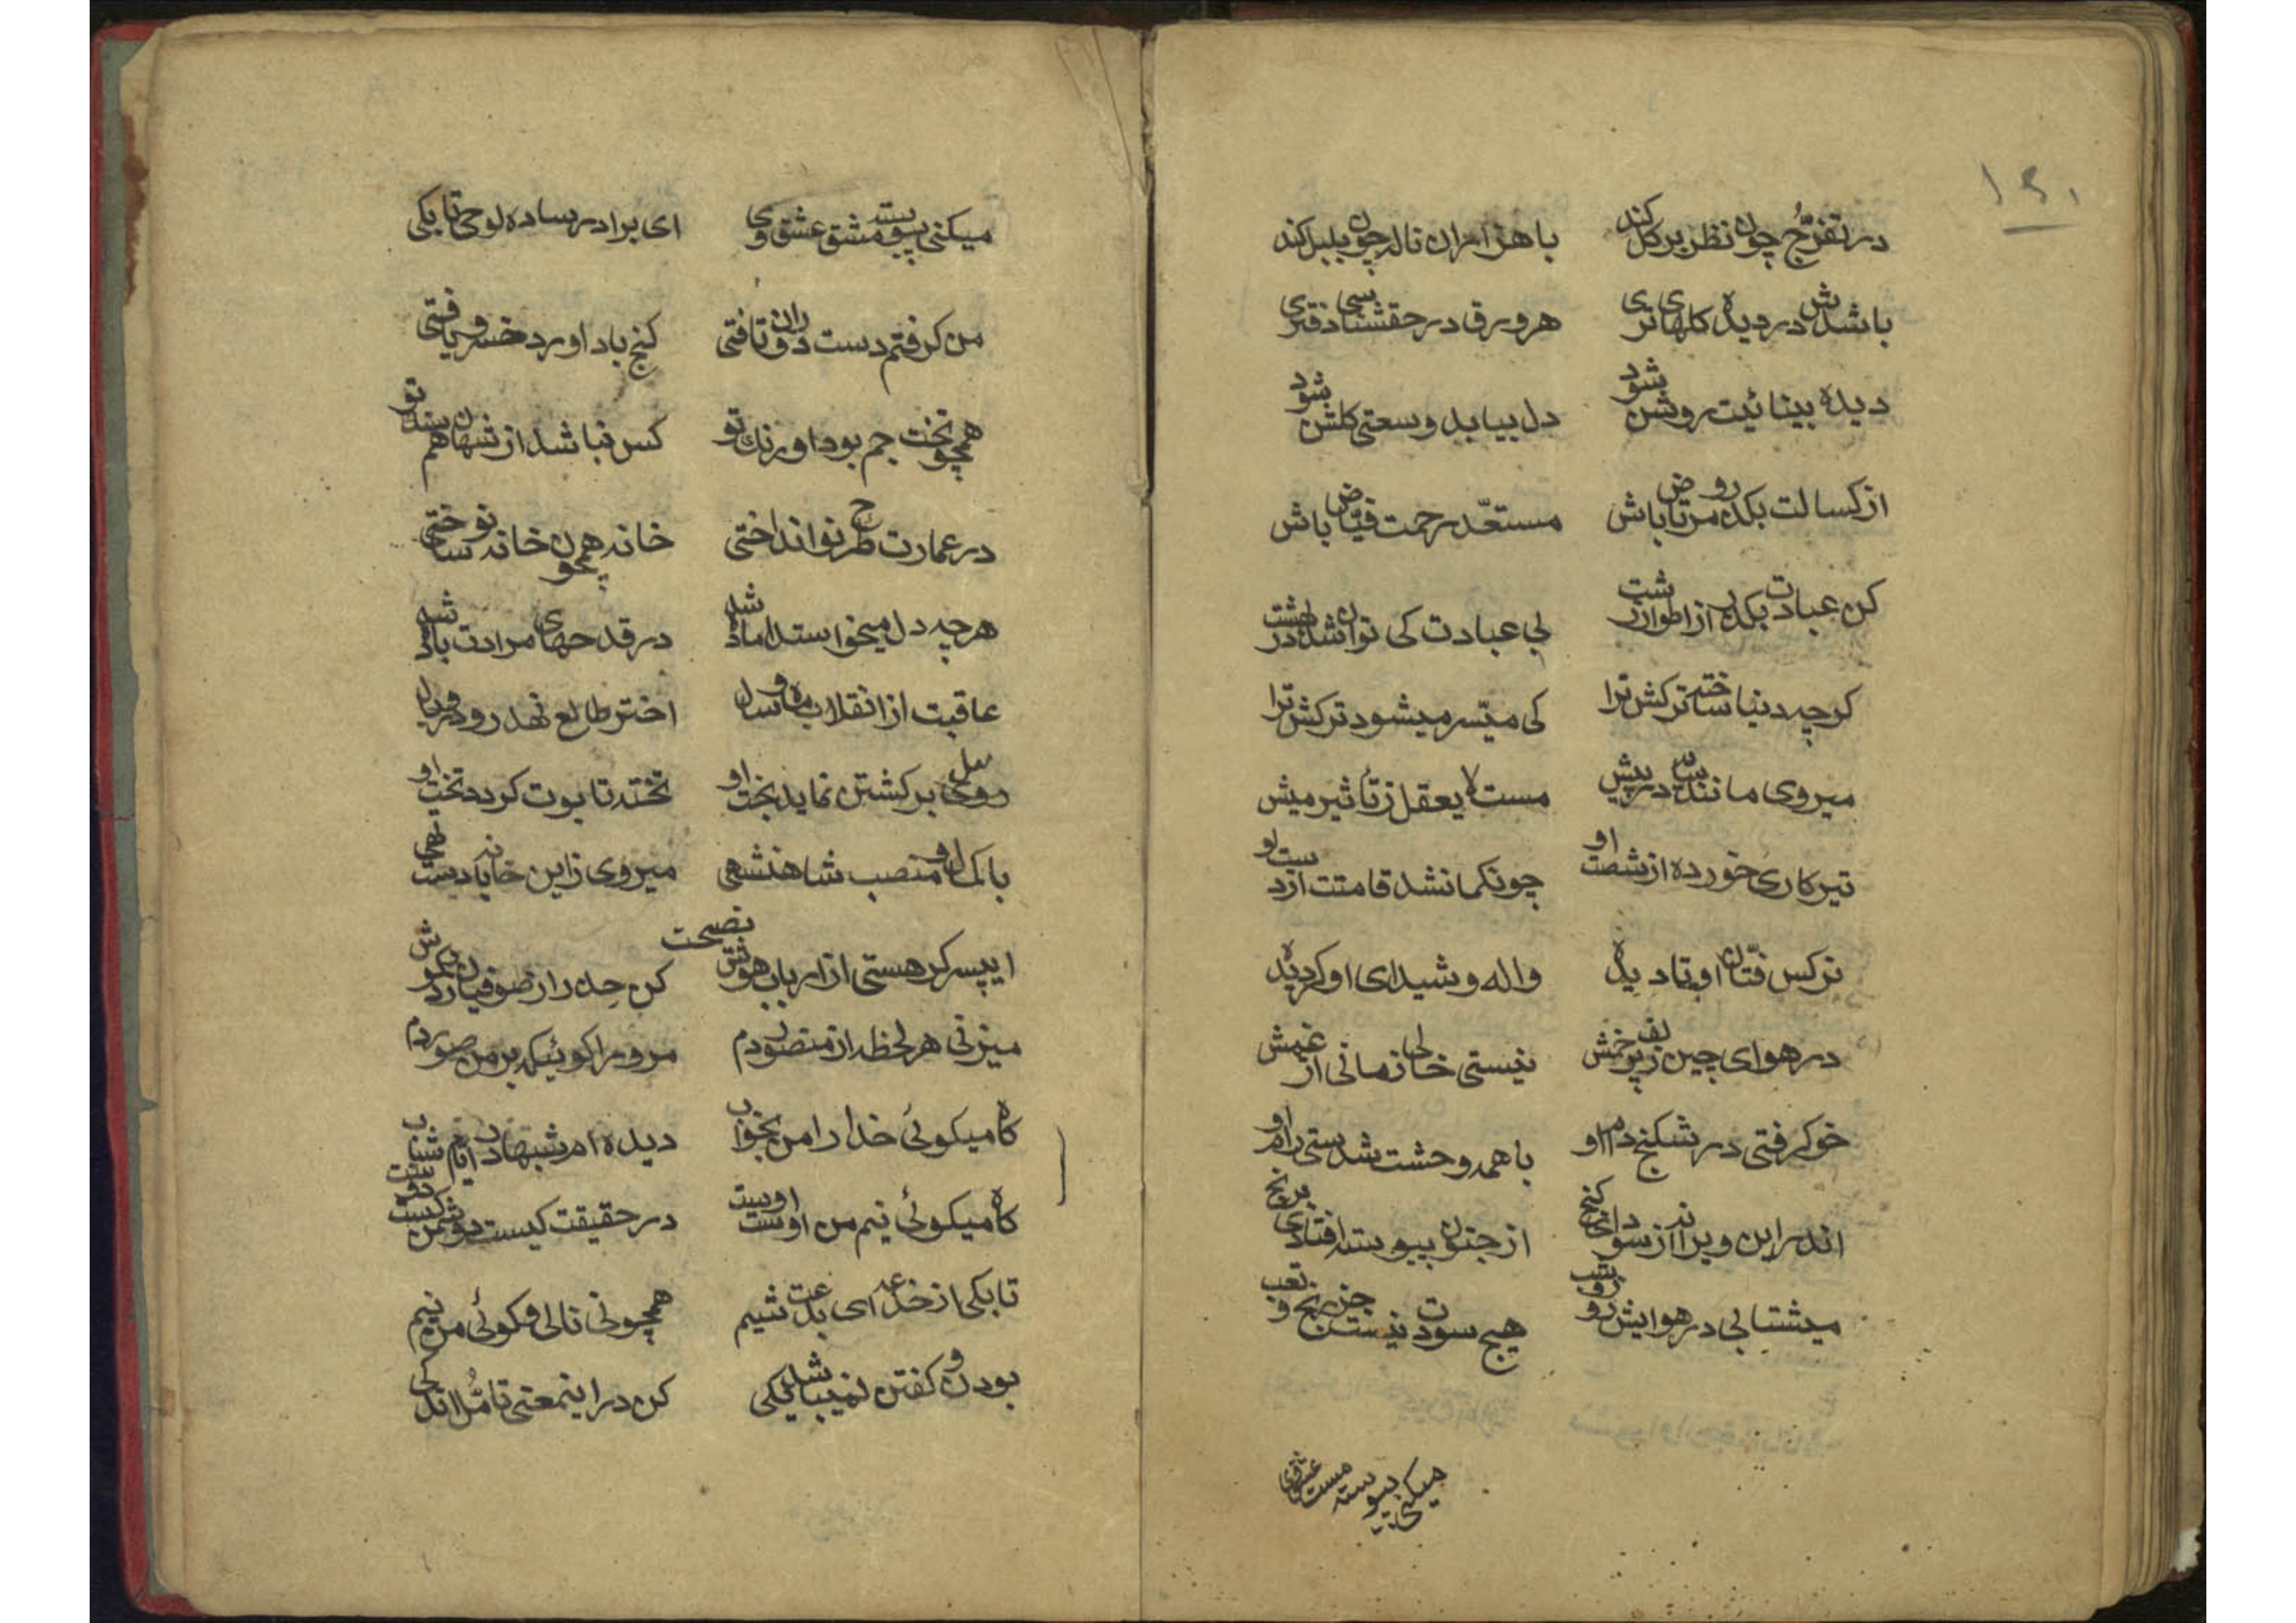 ۱۶۰
در تفرّج چون نظر بر کل کند باهزاران ناله چون بلبل کند
باشدش در دیدهٔ کلهای تری هر ورق در حقشناسی دفتری
دیده بینائیت روشن شود دل بیابد وسعتی کلشن شود
از کسالت بکذر و مرتاض باش مستعدّ رحمت فیّاض باش
کن عبادت بکذر از اطوار زشت بی عبادت کی توان شد در بهشت
کرچه دنیا ساخته ترکش ترا کی میّسر میشود ترکش ترا
میروی مانند در پیش مست لایعقل ز تأثیر میش
تیر کاری خورده از شصت او چونکمانشد قامتت از دست او
نرکس فتّان او تا دیدهٔ واله و شیدای او کردیدهٔ
در هوای چین زلف پر خمش نیستی خالی زمانی از غمش
خو کرفتی در شکنج دام او با همه وحشت شدستی رام او
اندر این ویرانه از سودای کنج از جنون پیوسته افتادی برنج
میشتابی در هوایش روز و شب هیچ سودت نیست جز رنج و تعب
میکنی پیوسته مشق عشق وی
میکنی پیوسته مشق عشق وی ای برادر ساده لوحی تا بکی
من کرفتم دست دوران تافتی کنج باد اورد خسرو یافتی
همچو تخت جم بود اورنک تو کس نباشد از شهان همسنک تو
در عمارت طرح نو انداختی خانه همچون خانه نو ساختی
هرچه دل میخواست اماده شد در قدحهای مرادت باده شد
عاقبت از انقلاب ماه و سال اختر طالع نهد رو در وبال
روی بر کشتن نماید بخت او تخته تابوت کردد تخت او
با کمال و منصب شاهنشهی میروی زاین خانه با دست تهی
نصیحت
ایپسر کر هستی از ارباب هوش کن حذر از صوفیان
میزنی هر لحظه از منصور دم مرو را کوئیکه بر من صور دم
کاه میکوئی خدا را من بخواب دیده ام شبها در ایام شباب
کاه میکوئی نیم من اوست اوست در حقیقت کیست دشمن کیست دوست
تا بکی از خدعه ای بدعت شیم همچو نی نالی و کوئی من نیم
بودن و کفتن نمیباشد یکی کن در اینمعنی تامّل اندکی